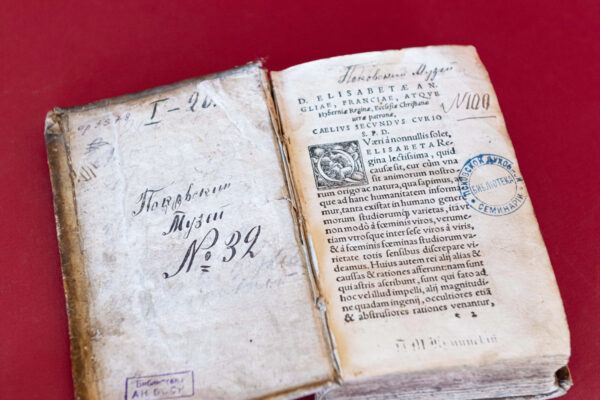 I–20.
Покровскій
Музей
№ 32
Библиотека
АН БССР
Музей
№ 100
D. ELISABETÆ AN-
GLIAE, FRANCIAE, ATQVE
Hyberniæ Reginæ, Ecclesiæ Christianæ
veræ patronæ,
CAELIUS SECUNDVS CVRIO
S. P. D.
Væri à nonnullis solet,
ELISABETA Re-
gina lectissima, quid
causæ sit, cur cùm vna
sit animorum nostro-
rum origo ac natura, qua sapimus, at-
que ad hanc humanitatem informa-
mur, tanta existat in humano genere
morum studiorumq́; varietas, ita vt
non modò à fœminis viros, verume-
tiam virosque inter sese viros à viris,
& à fœminis fœminas studiorum va-
rietate totis sensibus discrepare vi-
deamus. Huius autem rei alij alias &
caussas & rationes afferunt: nam sunt
qui astris ascribunt, sunt qui fato ad
hoc vel illud impelli, alij magnitudi-
ne quadam ingenij, occultiores etiã
& abstrusiores rationes venantur,
БИБЛИОТЕКА
СЕМИНАРІИ